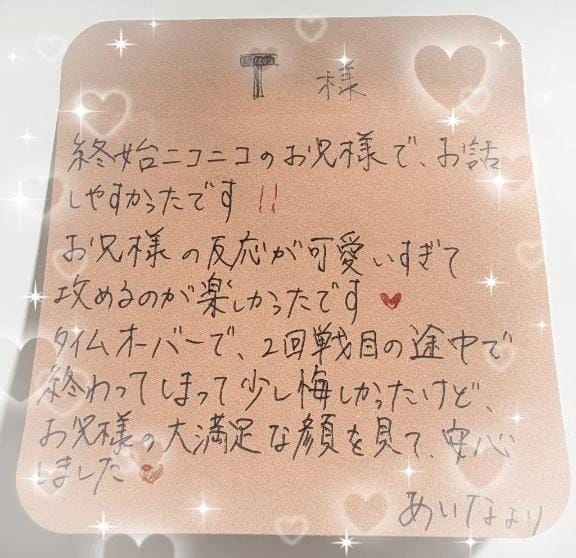 T 様
終始ニコニコのお兄様で、お話
しやすかったです!!
お兄様の反応が可愛いすぎて
攻めるのが楽しかったです♥
タイムオーバーで、2回戦目の途中で
終わってしまって少し悔しかったけど、
お兄様の大満足な顔を見て、安心
しました♥
あいなより